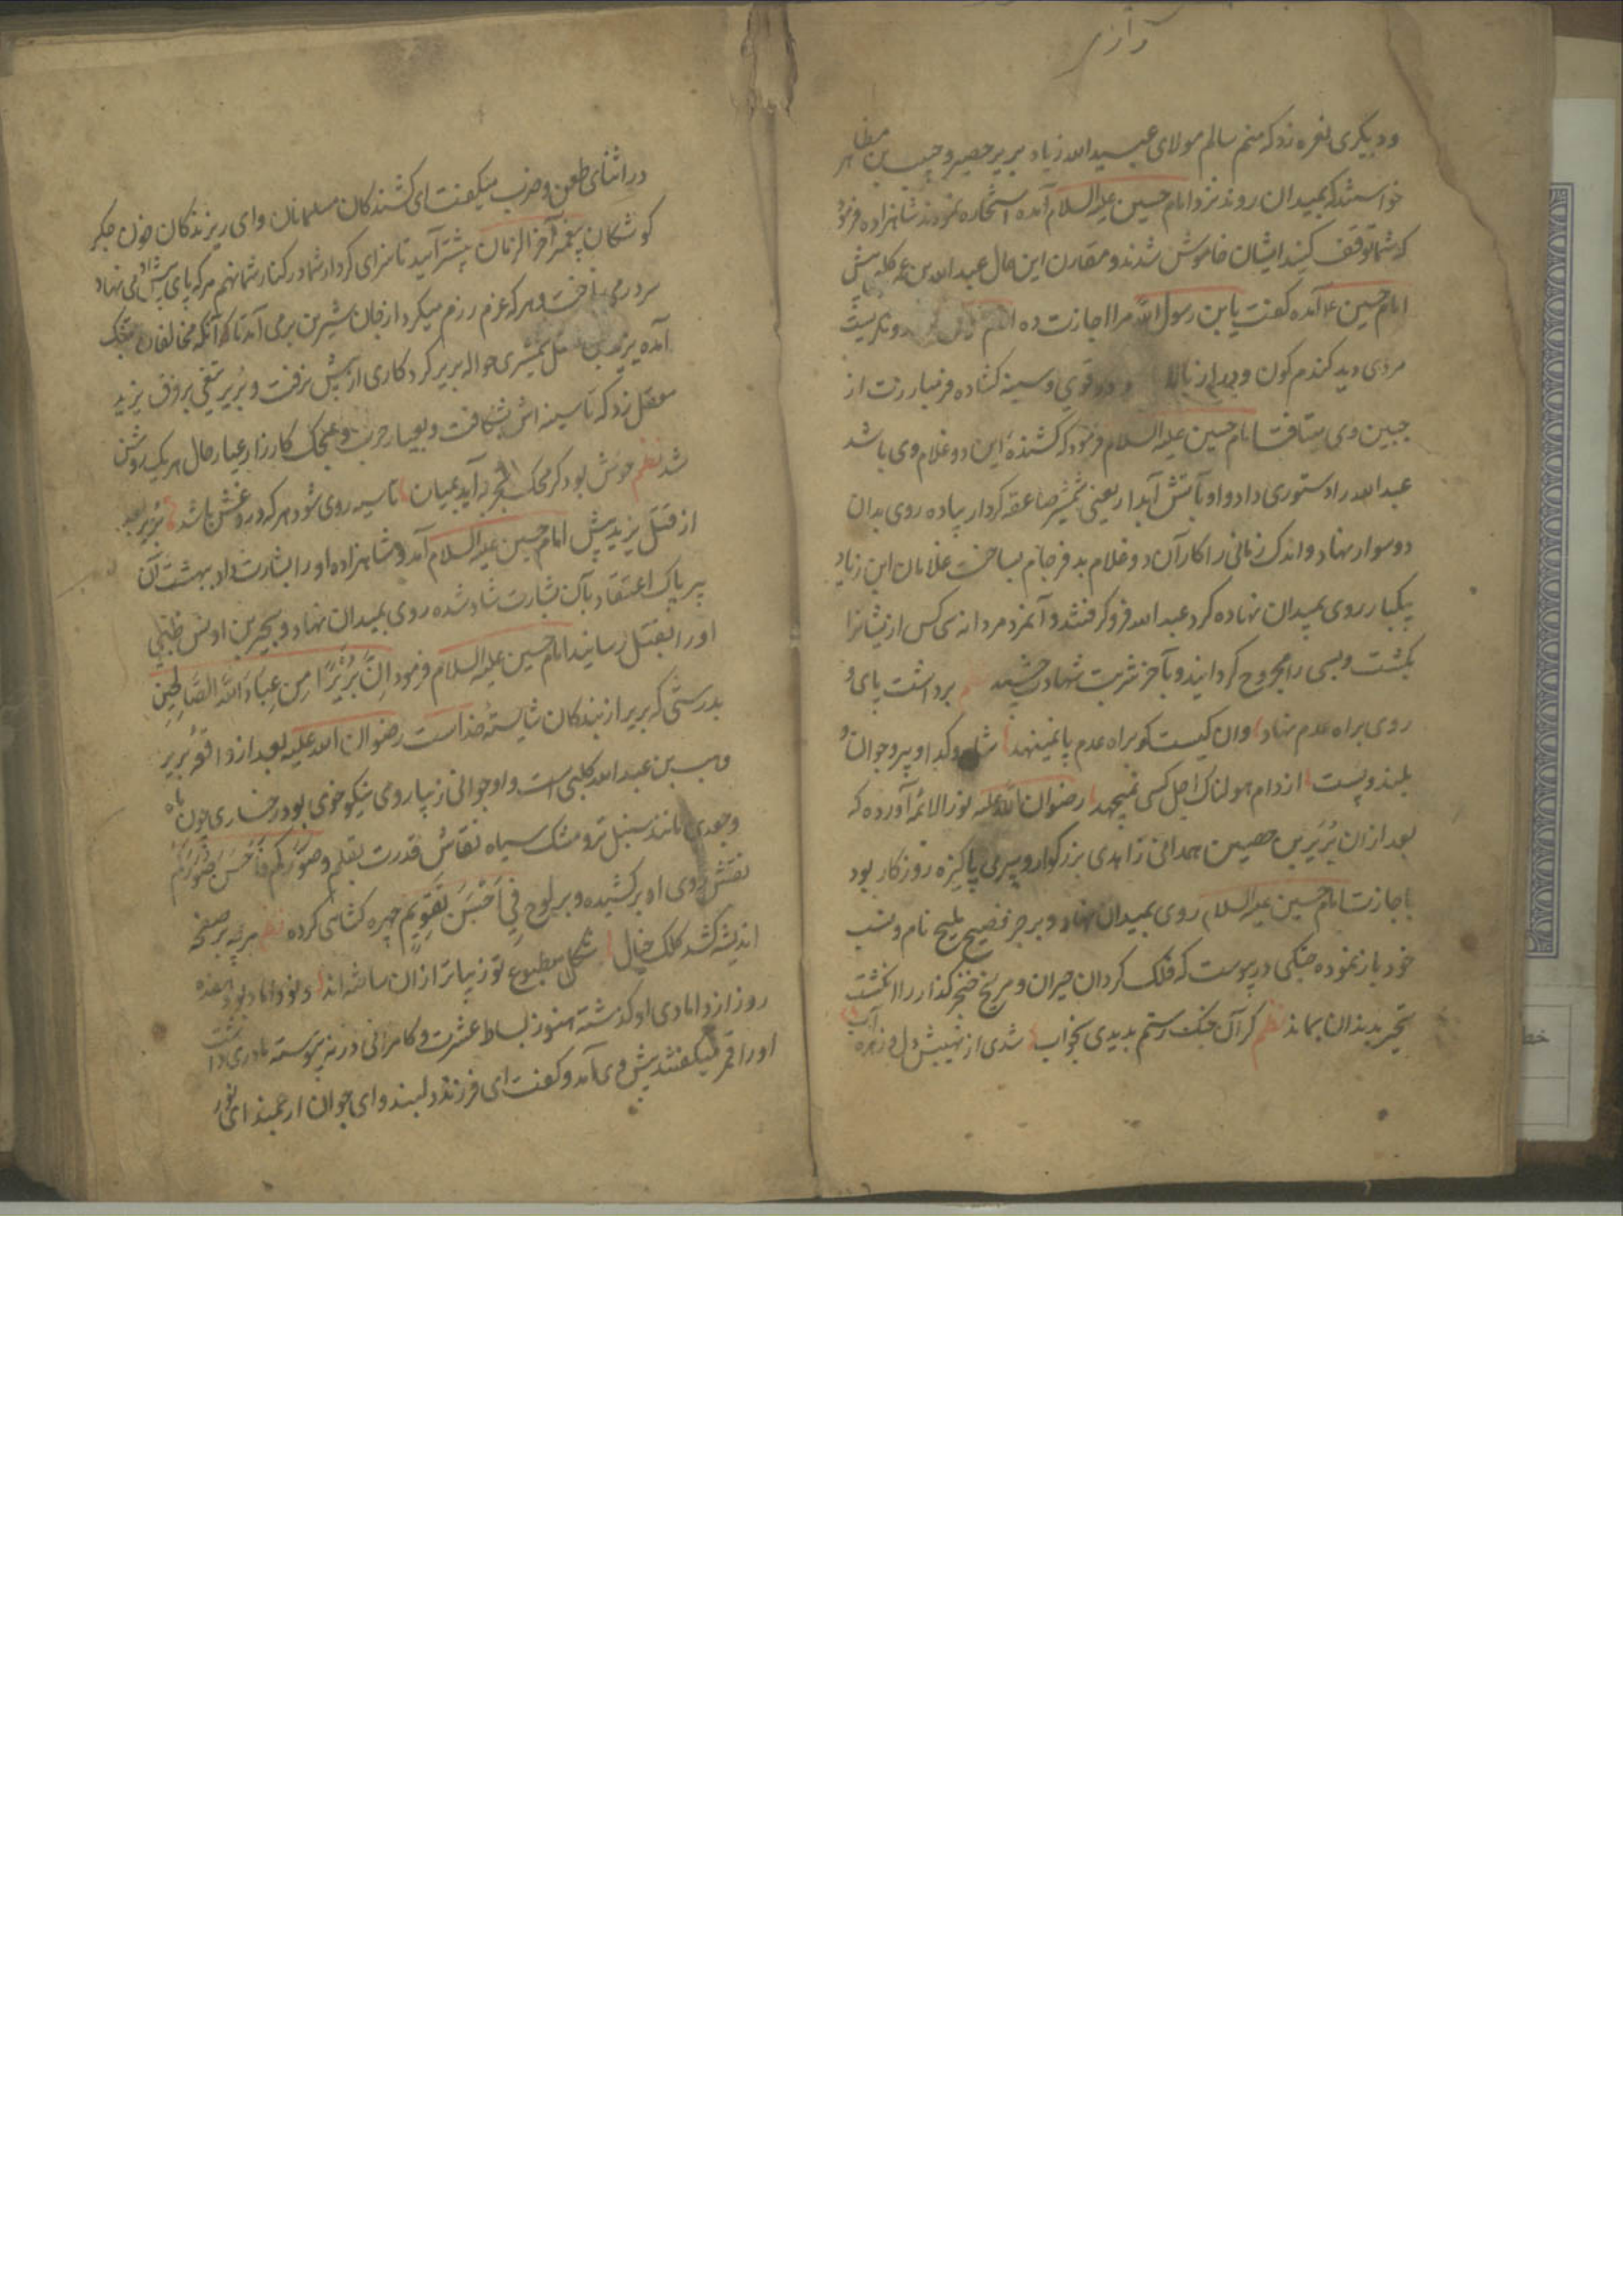 و دیگری نعره زد که منم سالم مولای عبیدالله زیاد بریر حصیر و حبیب بن مظاهر
خواستند که بمیدان روند نزد امام حسین علیه السلام آمده استجازه نمودند شاهزاده فرمود
که شما توقف کنید ایشان خاموش شدند و مقارن این حال عبدالله بن عمر کلبی پیش
امام حسین ع آمده گفت یا بن رسول الله مرا اجازت ده امام در نگریست
مردی دید گندم گون و دراز بالا و قوی و سینه گشاده و فر مبارزت از
جبین وی میتافت امام حسین علیه السلام فرمود که کشندهٔ این دو غلام وی باشد
عبدالله را دستوری داد و او با تش آبدار یعنی شمشیر صاعقه کردار پیاده روی بدان
دو سوار نهاد و اندک زمانی را کار آن دو غلام بدفرجام بساخت غلامان ابن زیاد
بیکبار روی بمیدان نهاده گرد عبدالله فرو گرفتند و آنمرد مردانه سی کس از یشانرا
بکشت و بسی را مجروح گردانید و بآخر شربت شهادت چشید برداشت پای و
روی براه عدم نهاد وان کیست کو براه عدم پا نمینهد شاه و گدا و پیر و جوان و
بلند و پست از دام هولناک اجل کس نمیجهد رضوان الله علیه نور الائمه آورده که
بعد ازان بریر بن حصین همدانی زاهدی بزرگوار و پیری پاکیزه روزگار بود
باجازت امام حسین علیه السلام روی بمیدان نهاد و برجز فصیح ملیح نام و نسب
خود باز نموده جنگی درپیوست که فلک گردان حیران و مریخ خنجر گذار را انگشت
تحیر بدندان بماند نظم گر آن جنگ رستم بدیدی بخواب شدی از نهیبش دل و زهره آب
در اثنای طعن و ضرب میگفت ای کشندگان مسلمانان و ای ریزندگان خون جگر
گوشگان پیغمبر آخر الزمان پیشتر آیید تا سزای کردار شما در کنار شما نهم هر که پای پیش او می نهاد
سر در می باخت و هر که عزم رزم میکرد از جان شیرین برمی آمد تا که آنکه مخالفان بتنگ
آمده یزید بن معقل شمشیری حواله بریر کرد کاری از پیش نرفت و بریر تیغی بر فرق یزید
معقل زد که تا سینه اش بشکافت و بعیار حرب و محک کارزار عیار حال هر یک روشن
شد نظم خوش بود گر محک تجربه آید بمیان تا سیه روی شود هر که در و غش باشد بریر بعد
از قتل یزید پیش امام حسین علیه السلام آمد و شاهزاده او را بشارت داد ببهشت آن
پیر پاک اعتقاد بآن بشارت شاد شده روی بمیدان نهاد و بحیر بن اوس ضبی
او را بقتل رسانید امام حسین علیه السلام فرمود اِنَّ بُرَیْرًا مِن عِبَادِ اللَّهِ الصَّالِحِین
بدرستی که بریر از بندگان شایستهٔ خداست رضوان الله علیه بعد از واقعهٔ بریر
وهب بن عبدالله کلبی است و او جوانی زیبا روی نیکو خوی بود رخساری چون ماه
و جعدی مانند سنبل تر و مشک سیاه نقاش قدرت بقلم و صَوَّرَکُم فَاَحْسَنَ صُوَرَکُمْ
نقش روی او برکشیده و بر لوح فِی اَحْسَنِ تَقْوِیم چهره گشائی کرده نظم هرچه بر صفحه
اندیشه کشد کلک خیال شکل مطبوع تو زیباتر ازان ساخته اند و نو داماد بود هفده
روز از دامادی او گذشته هنوز بساط عشرت و کامرانی در نه پیوسته مادری داشت
او را قمر میگفتند پیش وی آمد و گفت ای فرزند دلبند و ای جوان ارجمند ای نور